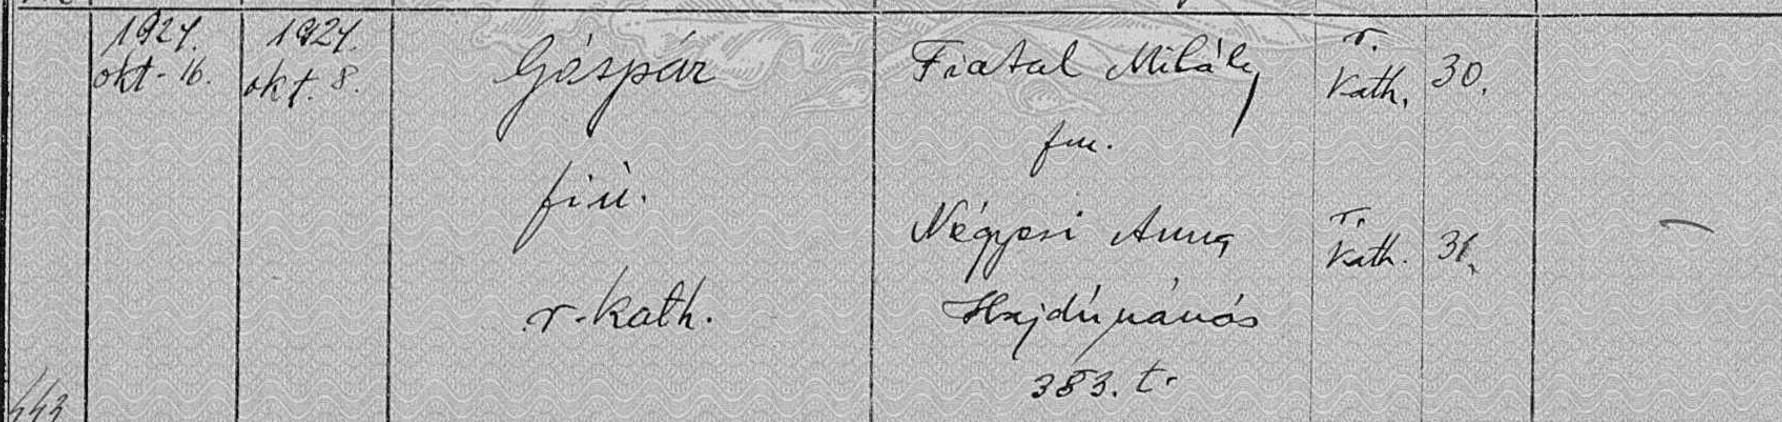 1924. okt - 16.
1924. okt. 8.
Gáspár
fiú.
r. kath.
Fiatal Mihály
fm.
Négyesi Anna
Hajdúnánás
383. t.
r. kath. 30.
r. kath. 31.
443